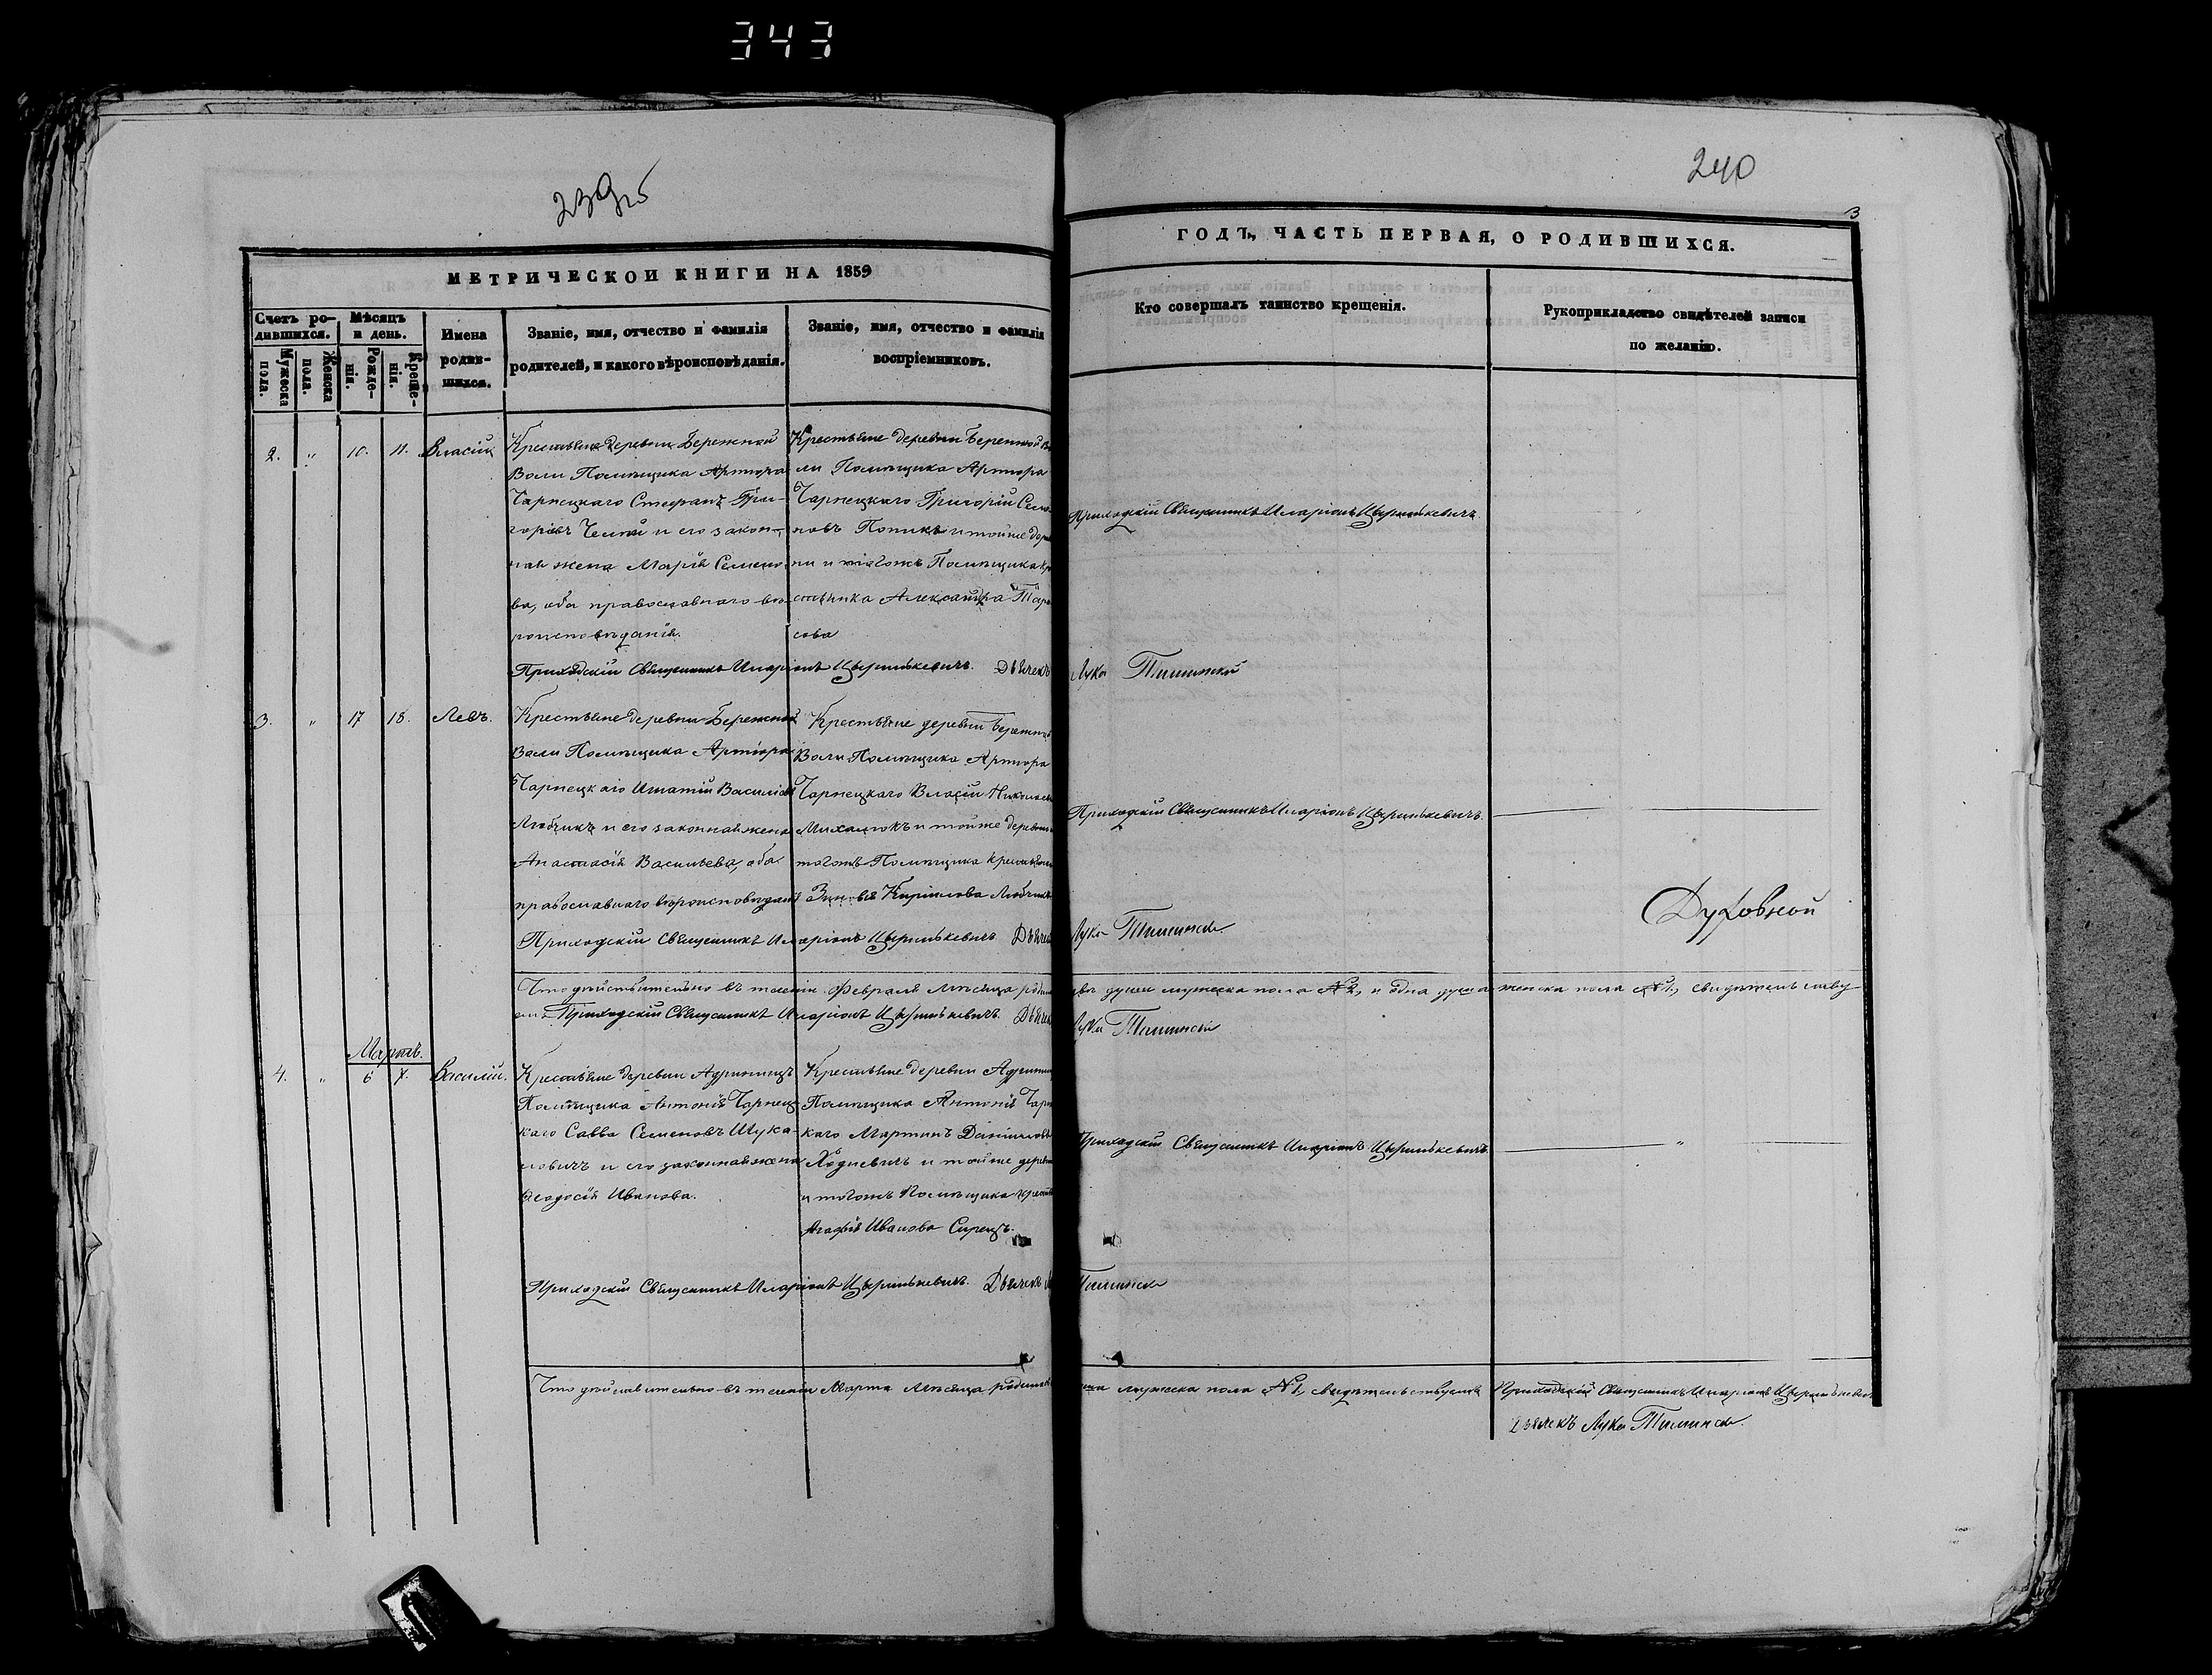 343
240
3
МЕТРИЧЕСКОЙ КНИГИ НА 1859
ГОДЪ, ЧАСТЬ ПЕРВАЯ, О РОДИВШИХСЯ.
Счетъ ро-
дившихся.
Мужеска
пола.
Женска
пола.
Мѣсяцъ
и день.
Рожде-
нія.
Креще-
нія.
Имена
родив-
шихся.
Званіе, имя, отчество и фамилія
родителей, и какого вѣроисповѣданія.
Званіе, имя, отчество и фамилія
воспріемниковъ.
Кто совершалъ таинство крещенія.
Рукоприкладство свидѣтелей записи
по желанію.
2. " 10. 11. Власій
Крестьяне деревни Бережной
Воли Помѣщика Артюра
Чарнецкаго Стефанъ Гри-
горіевъ и его закон-
ная жена Марія Семено-
ва, оба православнаго вѣ-
роисповѣданія.
Крестьяне деревни Бережной Во
ли Помѣщика Артюра
Чарнецкаго Григорій Семе
новъ и тойже дерев
ни и тогожъ Помѣщика кре
стьянка Александра Тара
сова
Приходскій Священникъ Иларіонъ
Приходскій Священникъ Иларіонъ Дьячекъ Лука
3. " 17 18. Левъ.
Крестьяне деревни Бережной
Воли Помѣщика Артюра
Чарнецкаго Игнатій Василіевъ
Любчикъ и его законная жена
Анастасія Васильева, оба
православнаго вѣроисповѣданія
Крестьяне деревни Бережной
Воли Помѣщика Артюра
Чарнецкаго Власій Николаевъ
и тойже деревни
тогожъ Помѣщика крестьянка
Зиновія Кирилова Любчикъ
Приходскій Священникъ Иларіонъ
Духовной
Приходскій Священникъ Иларіонъ Дьячекъ Лука
Что дѣйствительно въ теченіи Февраля Мѣсяца родилось двѣ души мужеска пола № 2, и одна душа женска пола № 1, свидѣтельству-
емъ Приходскій Священникъ Иларіонъ Дьячекъ Лука
Мартъ.
4. " 6 7. Василій.
Крестьяне деревни
Помѣщика Антонія Чарнец-
каго Савва Семеновъ Шука-
ловичъ и его законная жена
Ѳеодосія Иванова.
Крестьяне деревни
Помѣщика Антонія Чарнец
каго Мартинъ Даніиловъ
Ходневичъ и тойже деревни
и тогожъ Помѣщика крестьянка
Агафія Иванова
Приходскій Священникъ Иларіонъ
Приходскій Священникъ Иларіонъ Дьячекъ
Что дѣйствительно въ теченіи Марта Мѣсяца родилась душа мужеска пола № 1, свидѣтельствуемъ Приходскій Священникъ Иларіонъ
Дьячекъ Лука